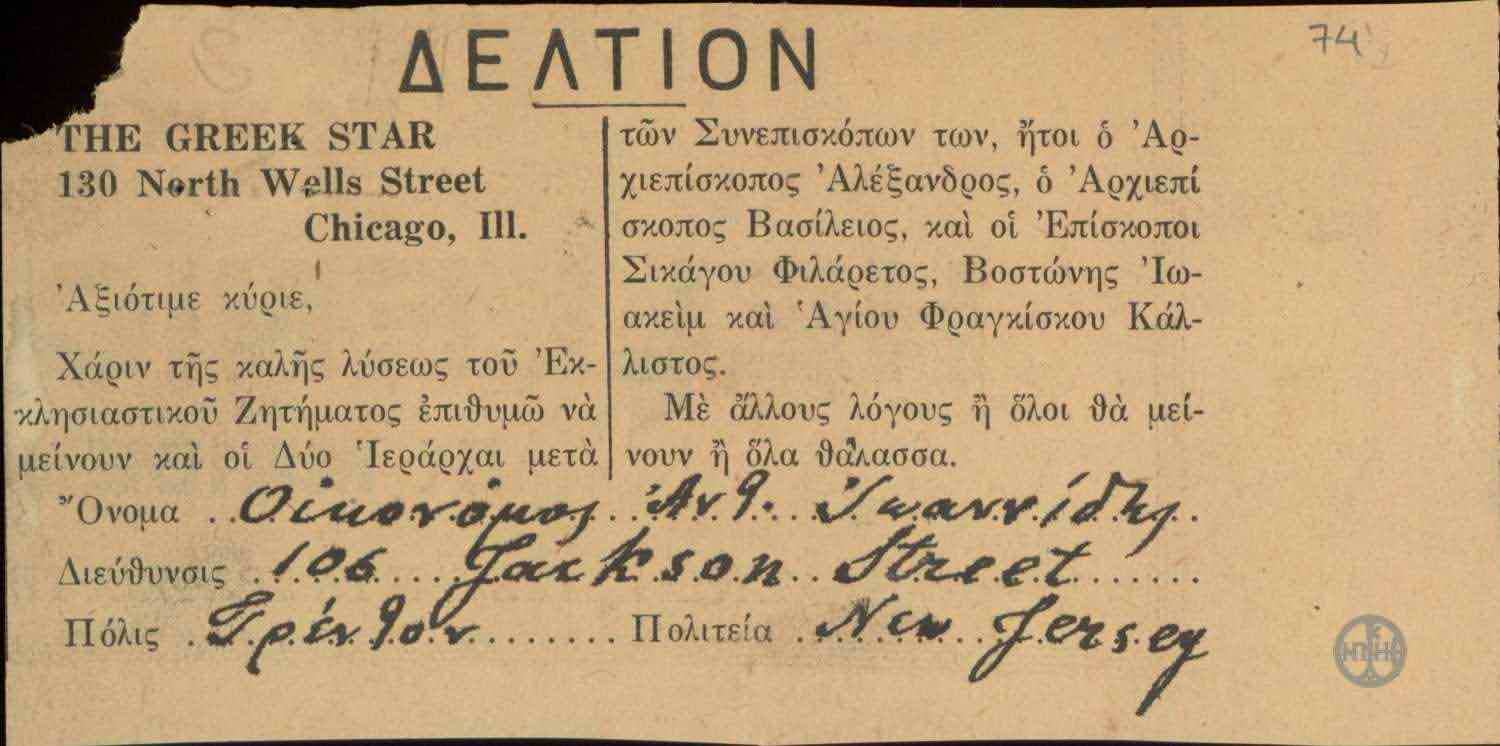 74
ΔΕΛΤΙΟΝ
THE GREEK STAR
130 North Wells Street
Chicago, Ill.
Ἀξιότιμε κύριε,
Χάριν τῆς καλῆς λύσεως τοῦ Ἐκ-
κλησιαστικοῦ Ζητήματος ἐπιθυμῶ νὰ
μείνουν καὶ οἱ Δύο Ἱεράρχαι μετὰ
τῶν Συνεπισκόπων των, ἤτοι ὁ Ἀρ-
χιεπίσκοπος Ἀλέξανδρος, ὁ Ἀρχιεπί
σκοπος Βασίλειος, καὶ οἱ Ἐπίσκοποι
Σικάγου Φιλάρετος, Βοστώνης Ἰω-
ακεὶμ καὶ Ἁγίου Φραγκίσκου Κάλ-
λιστος.
Μὲ ἄλλους λόγους ἢ ὅλοι θὰ μεί-
νουν ἢ ὅλα θάλασσα.
Ὄνομα Οἰκονόμος Ἀνθ. Ἰωαννίδης
Διεύθυνσις 106 Jackson Street
Πόλις Τρένθον Πολιτεία New Jersey